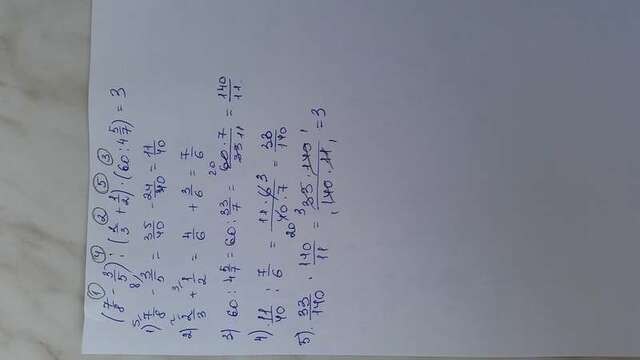 ① ④ ② ⑤ ③
(7/8 - 3/5) : (2/3 + 1/2) · (60 : 4 5/7) = 3
1) 5/ 7/8 - 8/ 3/5 = 35/40 - 24/40 = 11/40
2) 2/ 2/3 + 3/ 1/2 = 4/6 + 3/6 = 7/6
3) 60 : 4 5/7 = 60 : 33/7 = 20 60 · 7 / 33 11 = 140/11
4) 11/40 : 7/6 = 11 · 6 3 / 40 20 · 7 = 33/140
5). 33/140 · 140/11 = 3 33 · 140 1 / 1 140 · 11 1 = 3